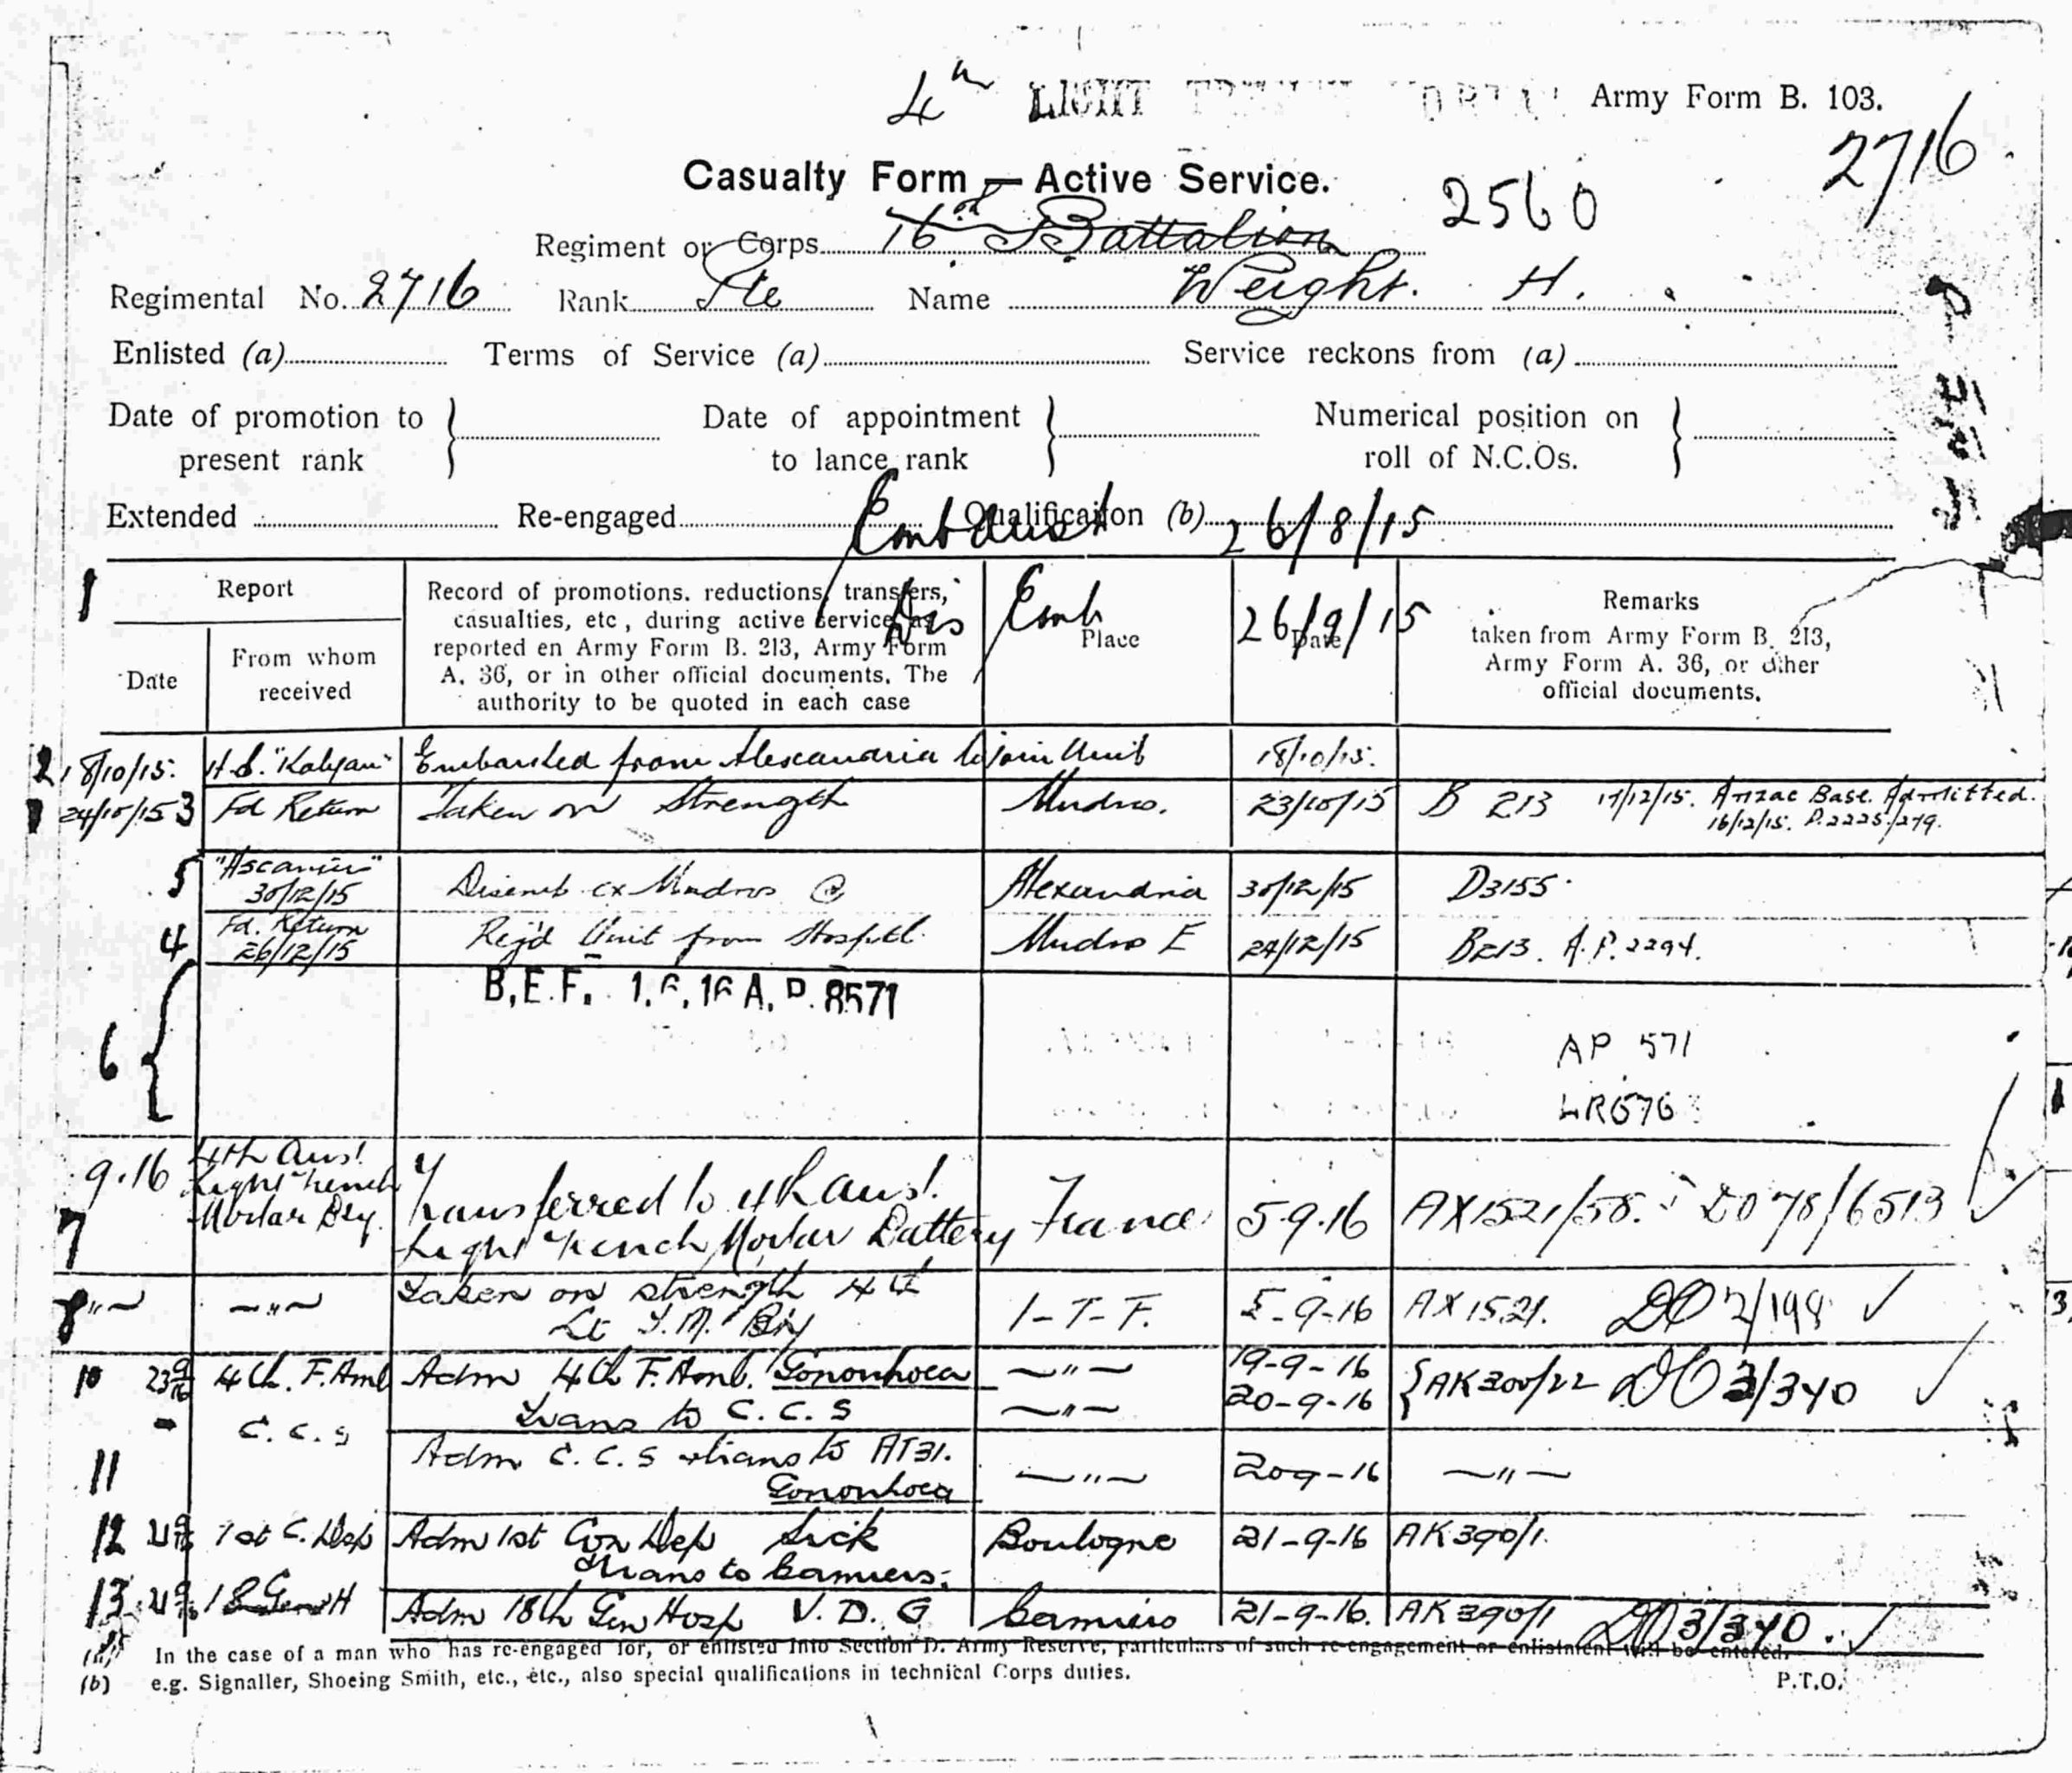 4th LIGHT Army Form B. 103.
2716
Casualty Form — Active Service.
2560
Regiment or Corps 16th Battalion
Regimental No. 2716 Rank Pte Name Weight. H.
Enlisted (a) Terms of Service (a) Service reckons from (a)
Date of promotion to present rank } Date of appointment to lance rank } Numerical position on roll of N.C.Os. }
Extended Re-engaged Qualification (b)
Emb Aust 26/8/15
Dis Emb 26/9/15
1
Report
Date
From whom received
Record of promotions, reductions, transfers,
casualties, etc, during active service, as
reported en Army Form B. 213, Army Form
A. 36, or in other official documents. The
authority to be quoted in each case
Place
Date
Remarks
taken from Army Form B. 213,
Army Form A. 36, or other
official documents.
2 18/10/15. H.S. "Kalyan" Embarked from Alexandria to join Unit 18/10/15.
24/10/15 3 Fd Return Taken on Strength Mudros. 23/10/15 B 213 17/12/15. Anzac Base. Admitted.
16/12/15. P.2225/279.
5 "Ascanius" 30/12/15 Disemb ex Mudros @ Alexandria 30/12/15 D3155.
4 Fd. Return 26/12/15 Rej'd Unit from Hosptl. Mudros E 24/12/15 B213. A.P. 2294.
B.E.F. 1.6.16 A.P. 8571
6 {
AP 571
LR676
7 9.16 4th Aus! Light Trench Mortar Bty. Transferred to 4th Aus!
Light Trench Mortar Battery France 5.9.16 AX1521/58. DO 78/6513
8 "  " Taken on strength 4th
Lt T.M. Bty I-T-F. 5-9-16 AX1521. DO 2/198
10 23 9/16 4th. F. Amb Adm 4th F. Amb. Gonorrhoea " 19-9-16
Trans to C.C.S " 20-9-16 { AK300/22 DO 3/340
C.C.S
11 Adm C.C.S & trans to AT31.
Gonorrhoea " 209-16 "
12 21 9/16 1st C. Dep Adm 1st Con Dep Sick Boulogne 21-9-16 AK390/1.
trans to Camiers.
13 21 9/16 18 Gen H Adm 18th Gen Hosp V.D.G Camiers 21-9-16. AK390/1 DO 3/340.
(a) In the case of a man who has re-engaged for, or enlisted into Section D. Army Reserve, particulars of such re-engagement or enlistment will be entered.
(b) e.g. Signaller, Shoeing Smith, etc., etc., also special qualifications in technical Corps duties.
P.T.O.